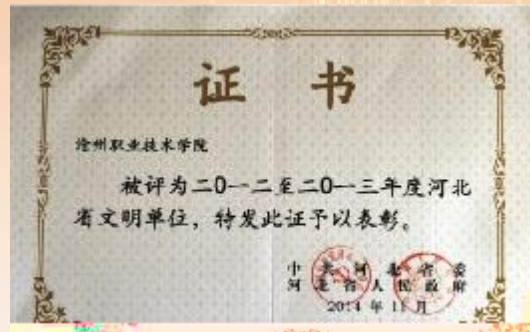 证 书
沧州职业技术学院
被评为二0一二至二0一三年度河北
省文明单位，特发此证予以表彰。
中共河北省委
河北省人民政府
2014 年 11 月